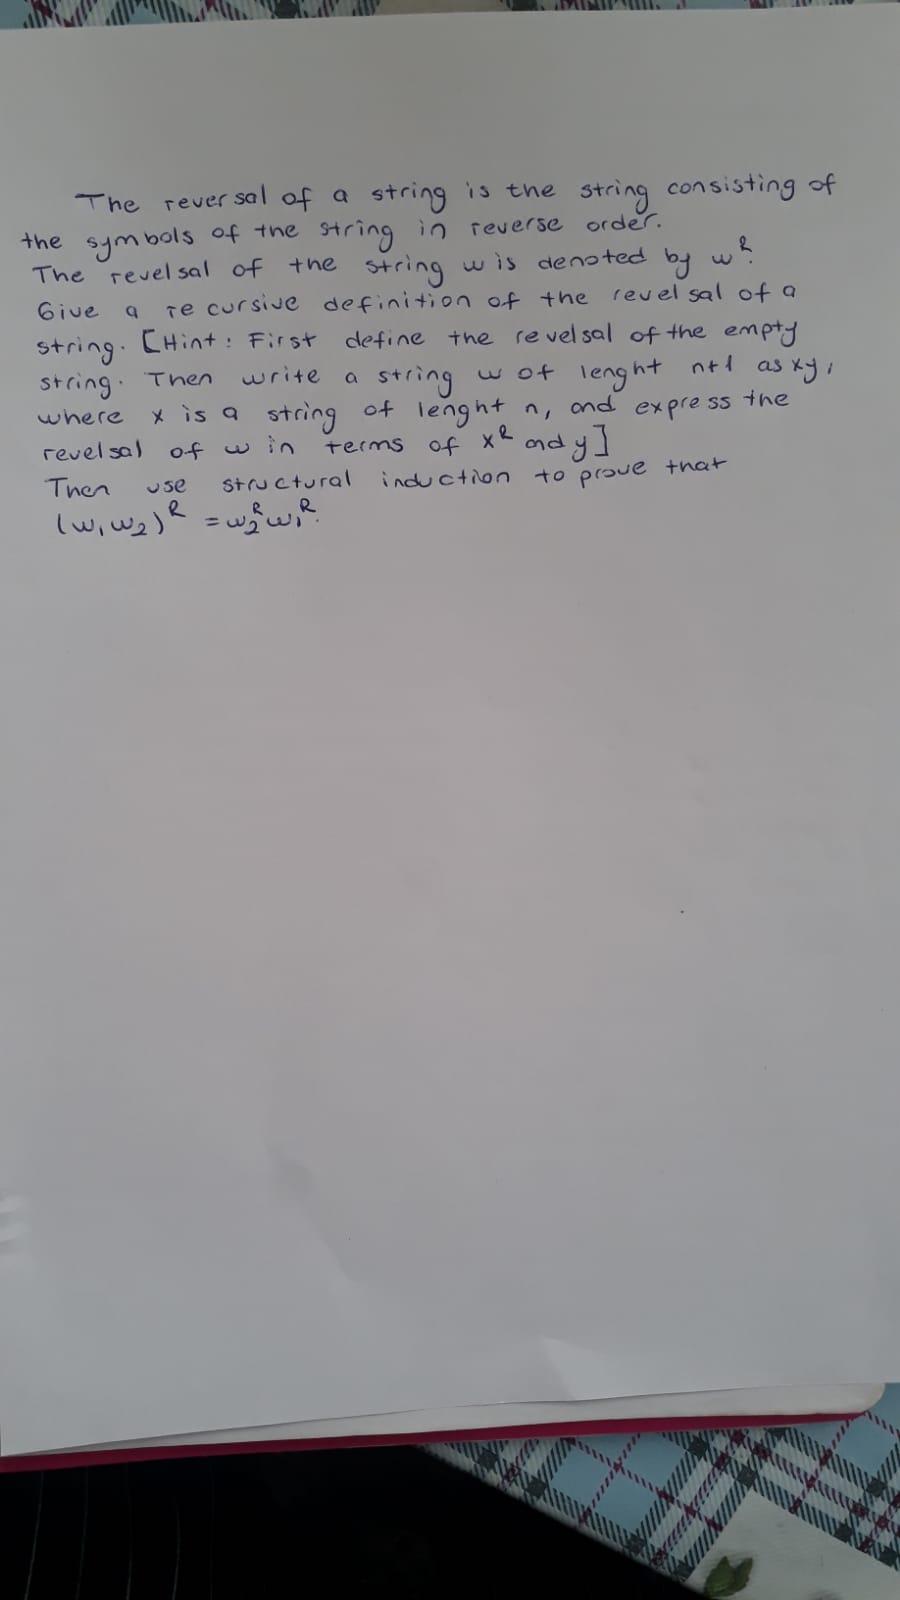 The reversal of a string is the string consisting of
the symbols of the string in reverse order.
The revelsal of the string w is denoted by w^R.
Give a recursive definition of the revelsal of a
string. [Hint: First define the revelsal of the empty
string. Then write a string w of lenght n+1 as xy,
where x is a string of lenght n, and express the
revelsal of w in terms of x^R and y]
Then use structural induction to prove that
(w₁w₂)^R = w₂^R w₁^R.